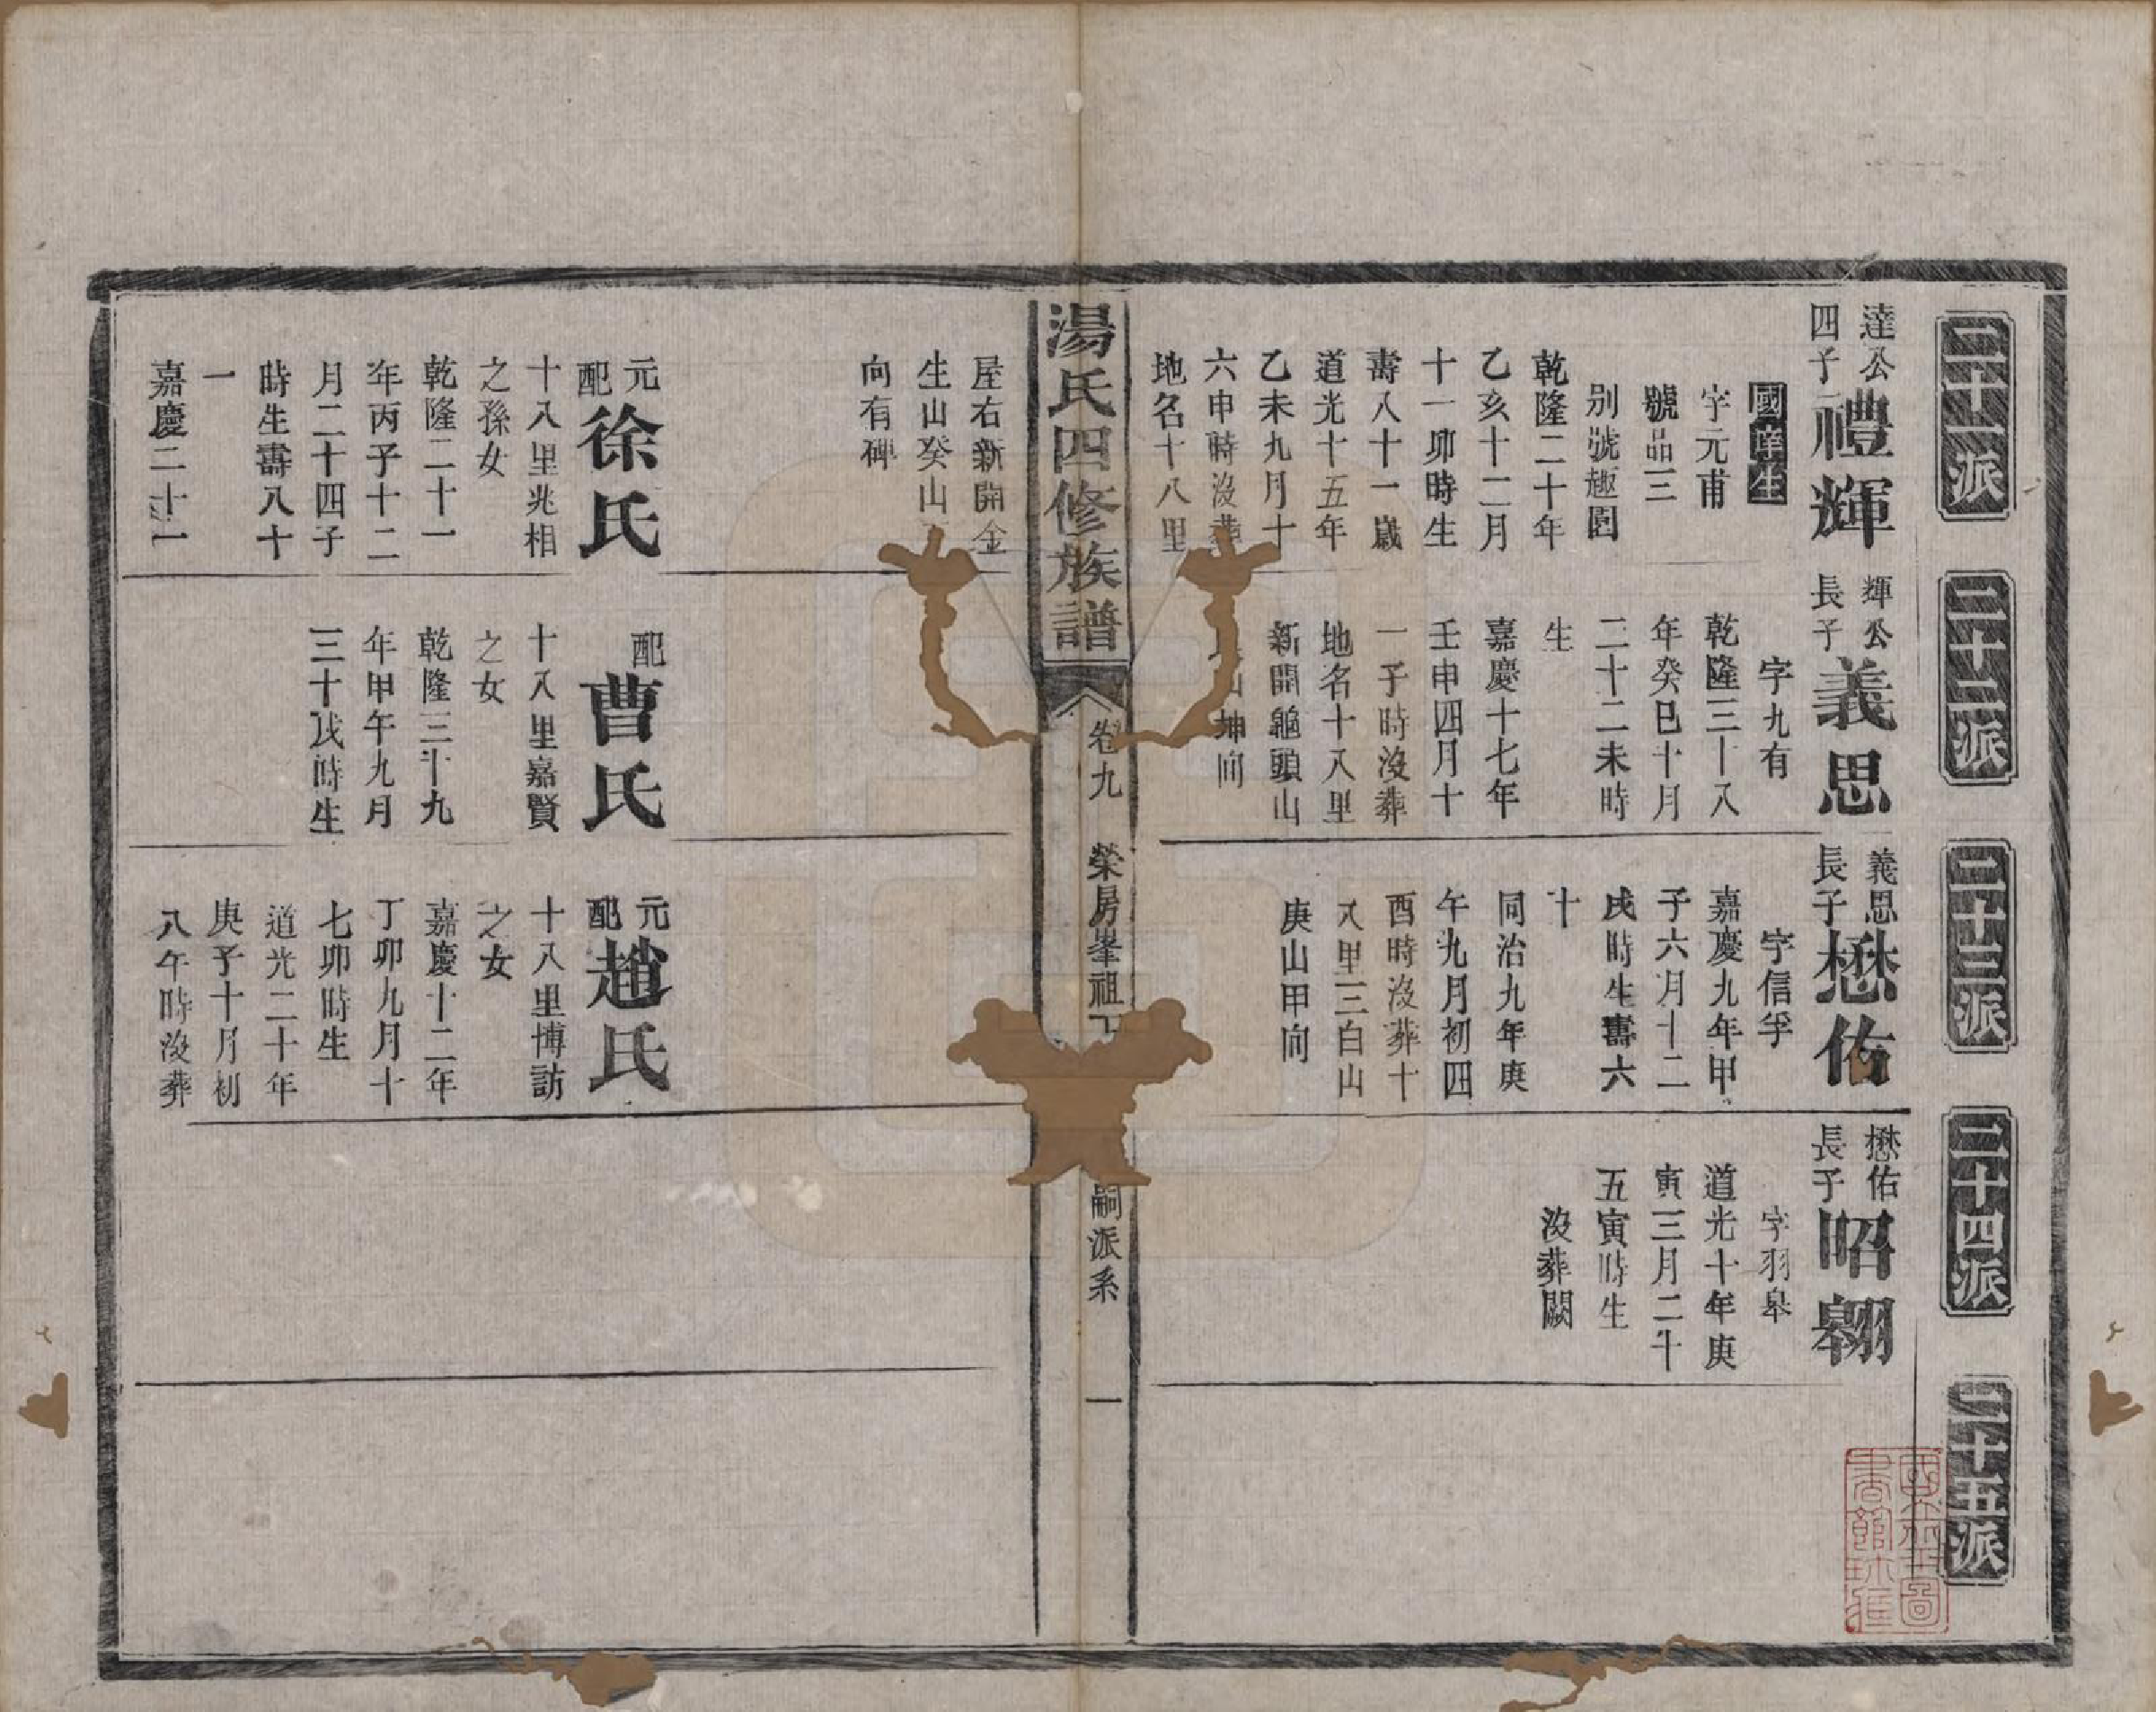 二十一派
二十二派
二十三派
二十四派
二十五派
達公
四子
禮輝
國庠生
字元甫
號品三
别號趣園
乾隆二十年
乙亥十二月
十一卯時生
壽八十一歲
道光十五年
乙未九月十
六申時沒葬
地名十八里
輝公
長子
義思
字九有
乾隆三十八
年癸巳十月
二十二未時
生
嘉慶十七年
壬申四月十
一子時沒葬
地名十八里
新開龜頭山
山坤向
義思
長子
懋佑
字信孚
嘉慶九年甲
子六月十二
戌時生壽六
十
同治九年庚
午九月初四
酉時沒葬十
八里三白山
庚山甲向
懋佑
長子
昭翱
字羽皋
道光十年庚
寅三月二十
五寅時生
沒葬闕
湯氏四修族譜
卷九
榮房峯祖下
嗣派系
一
屋右新開金
生山癸山
向有碑
元
配
徐氏
十八里兆相
之孫女
乾隆二十一
年丙子十二
月二十四子
時生壽八十
一
嘉慶二十一
配
曹氏
十八里嘉賢
之女
乾隆三十九
年甲午九月
三十戌時生
元
配
趙氏
十八里博訪
之女
嘉慶十二年
丁卯九月十
七卯時生
道光二十年
庚子十月初
八午時沒葬